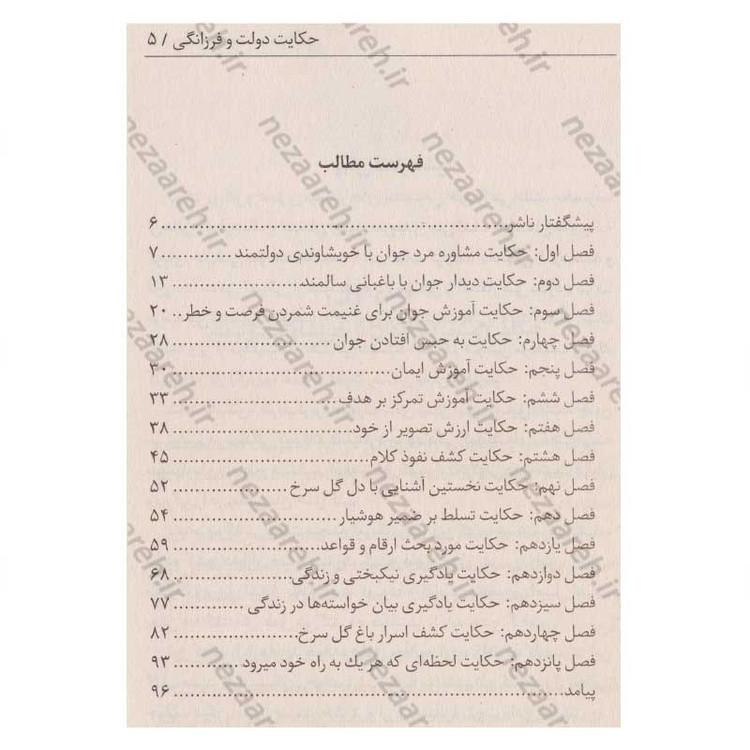 حکایت دولت و فرزانگی / ۵
فهرست مطالب
پیشگفتار ناشر ۶
فصل اول: حکایت مشاوره مرد جوان با خویشاوندی دولتمند ۷
فصل دوم: حکایت دیدار جوان با باغبانی سالمند ۱۳
فصل سوم: حکایت آموزش جوان برای غنیمت شمردن فرصت و خطر ۲۰
فصل چهارم: حکایت به حبس افتادن جوان ۲۸
فصل پنجم: حکایت آموزش ایمان ۳۰
فصل ششم: حکایت آموزش تمرکز بر هدف ۳۳
فصل هفتم: حکایت ارزش تصویر از خود ۳۸
فصل هشتم: حکایت کشف نفوذ کلام ۴۵
فصل نهم: حکایت نخستین آشنایی با دل گل سرخ ۵۲
فصل دهم: حکایت تسلط بر ضمیر هوشیار ۵۴
فصل یازدهم: حکایت مورد بحث ارقام و قواعد ۵۹
فصل دوازدهم: حکایت یادگیری نیکبختی و زندگی ۶۸
فصل سیزدهم: حکایت یادگیری بیان خواسته‌ها در زندگی ۷۷
فصل چهاردهم: حکایت کشف اسرار باغ گل سرخ ۸۲
فصل پانزدهم: حکایت لحظه‌ای که هر یك به راه خود میرود ۹۳
پیامد ۹۶
nezaareh.ir